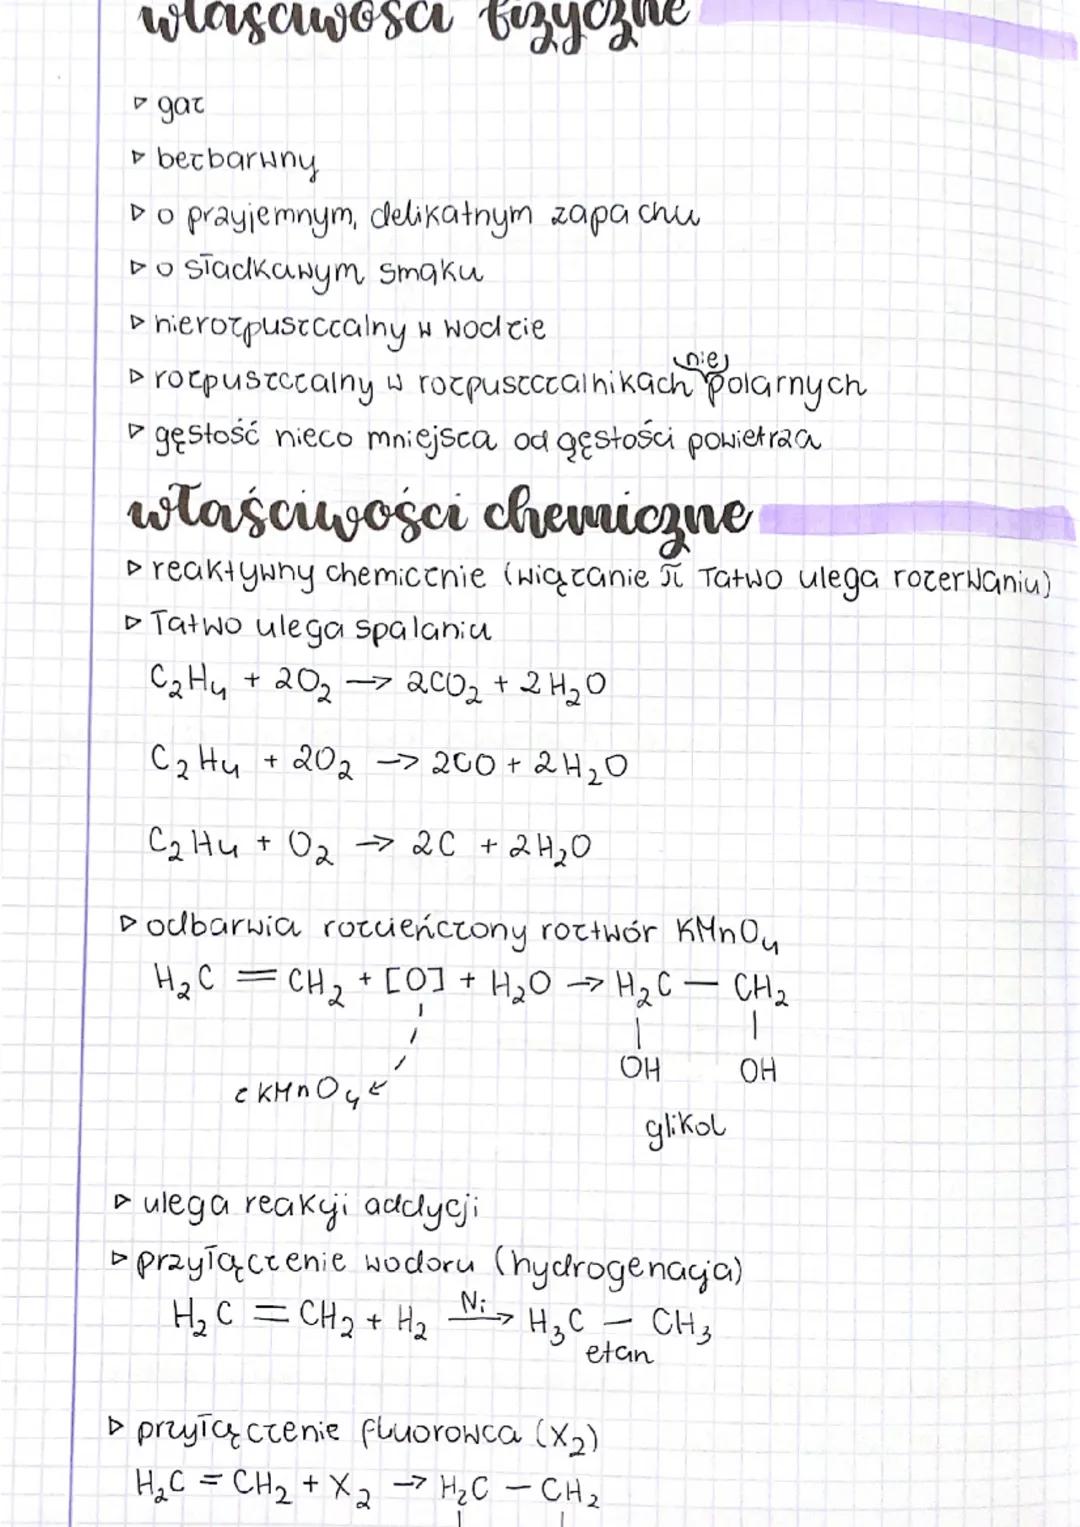 właściwości fizyczne
▹ gaz
▹ bezbarwny
▹ o przyjemnym, delikatnym zapachu
▹ o słodkawym smaku
▹ nierozpuszczalny w wodzie
▹ rozpuszczalny w rozpuszczalnikach (nie)polarnych
▹ gęstość nieco mniejsza od gęstości powietrza
właściwości chemiczne
▹ reaktywny chemicznie (wiązanie π łatwo ulega rozerwaniu)
▹ łatwo ulega spalaniu
C₂H₄ + 2O₂ → 2CO₂ + 2H₂O
C₂H₄ + 2O₂ → 2CO + 2H₂O
C₂H₄ + O₂ → 2C + 2H₂O
▹ odbarwia rozcieńczony roztwór KMnO₄
H₂C = CH₂ + [O] + H₂O → H₂C — CH₂
OH OH
z KMnO₄
glikol
▹ ulega reakcji addycji
▹ przyłączenie wodoru (hydrogenacja)
H₂C = CH₂ + H₂ Ni→ H₃C — CH₃
etan
▹ przyłączenie fluorowca (X₂)
H₂C = CH₂ + X₂ → H₂C — CH₂